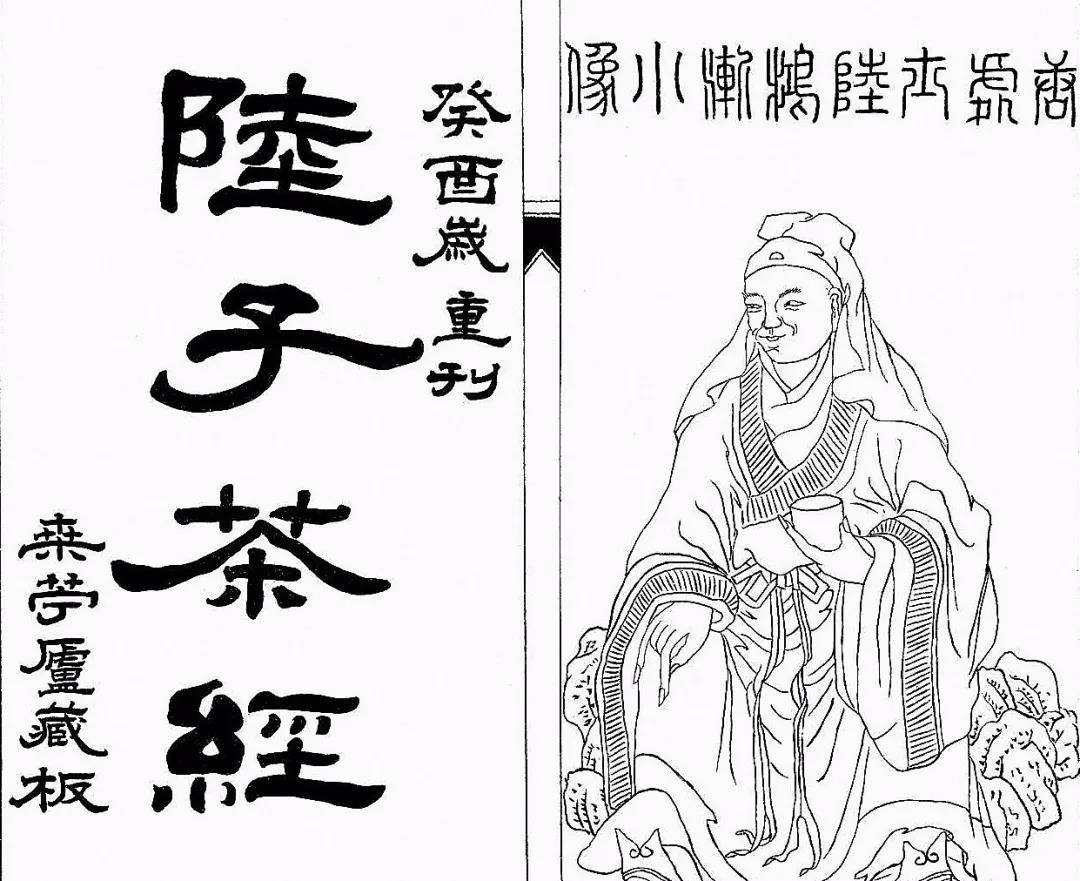 唐處士陸鴻漸小像
癸酉歲重刊
陸子茶經
桑苧廬藏板